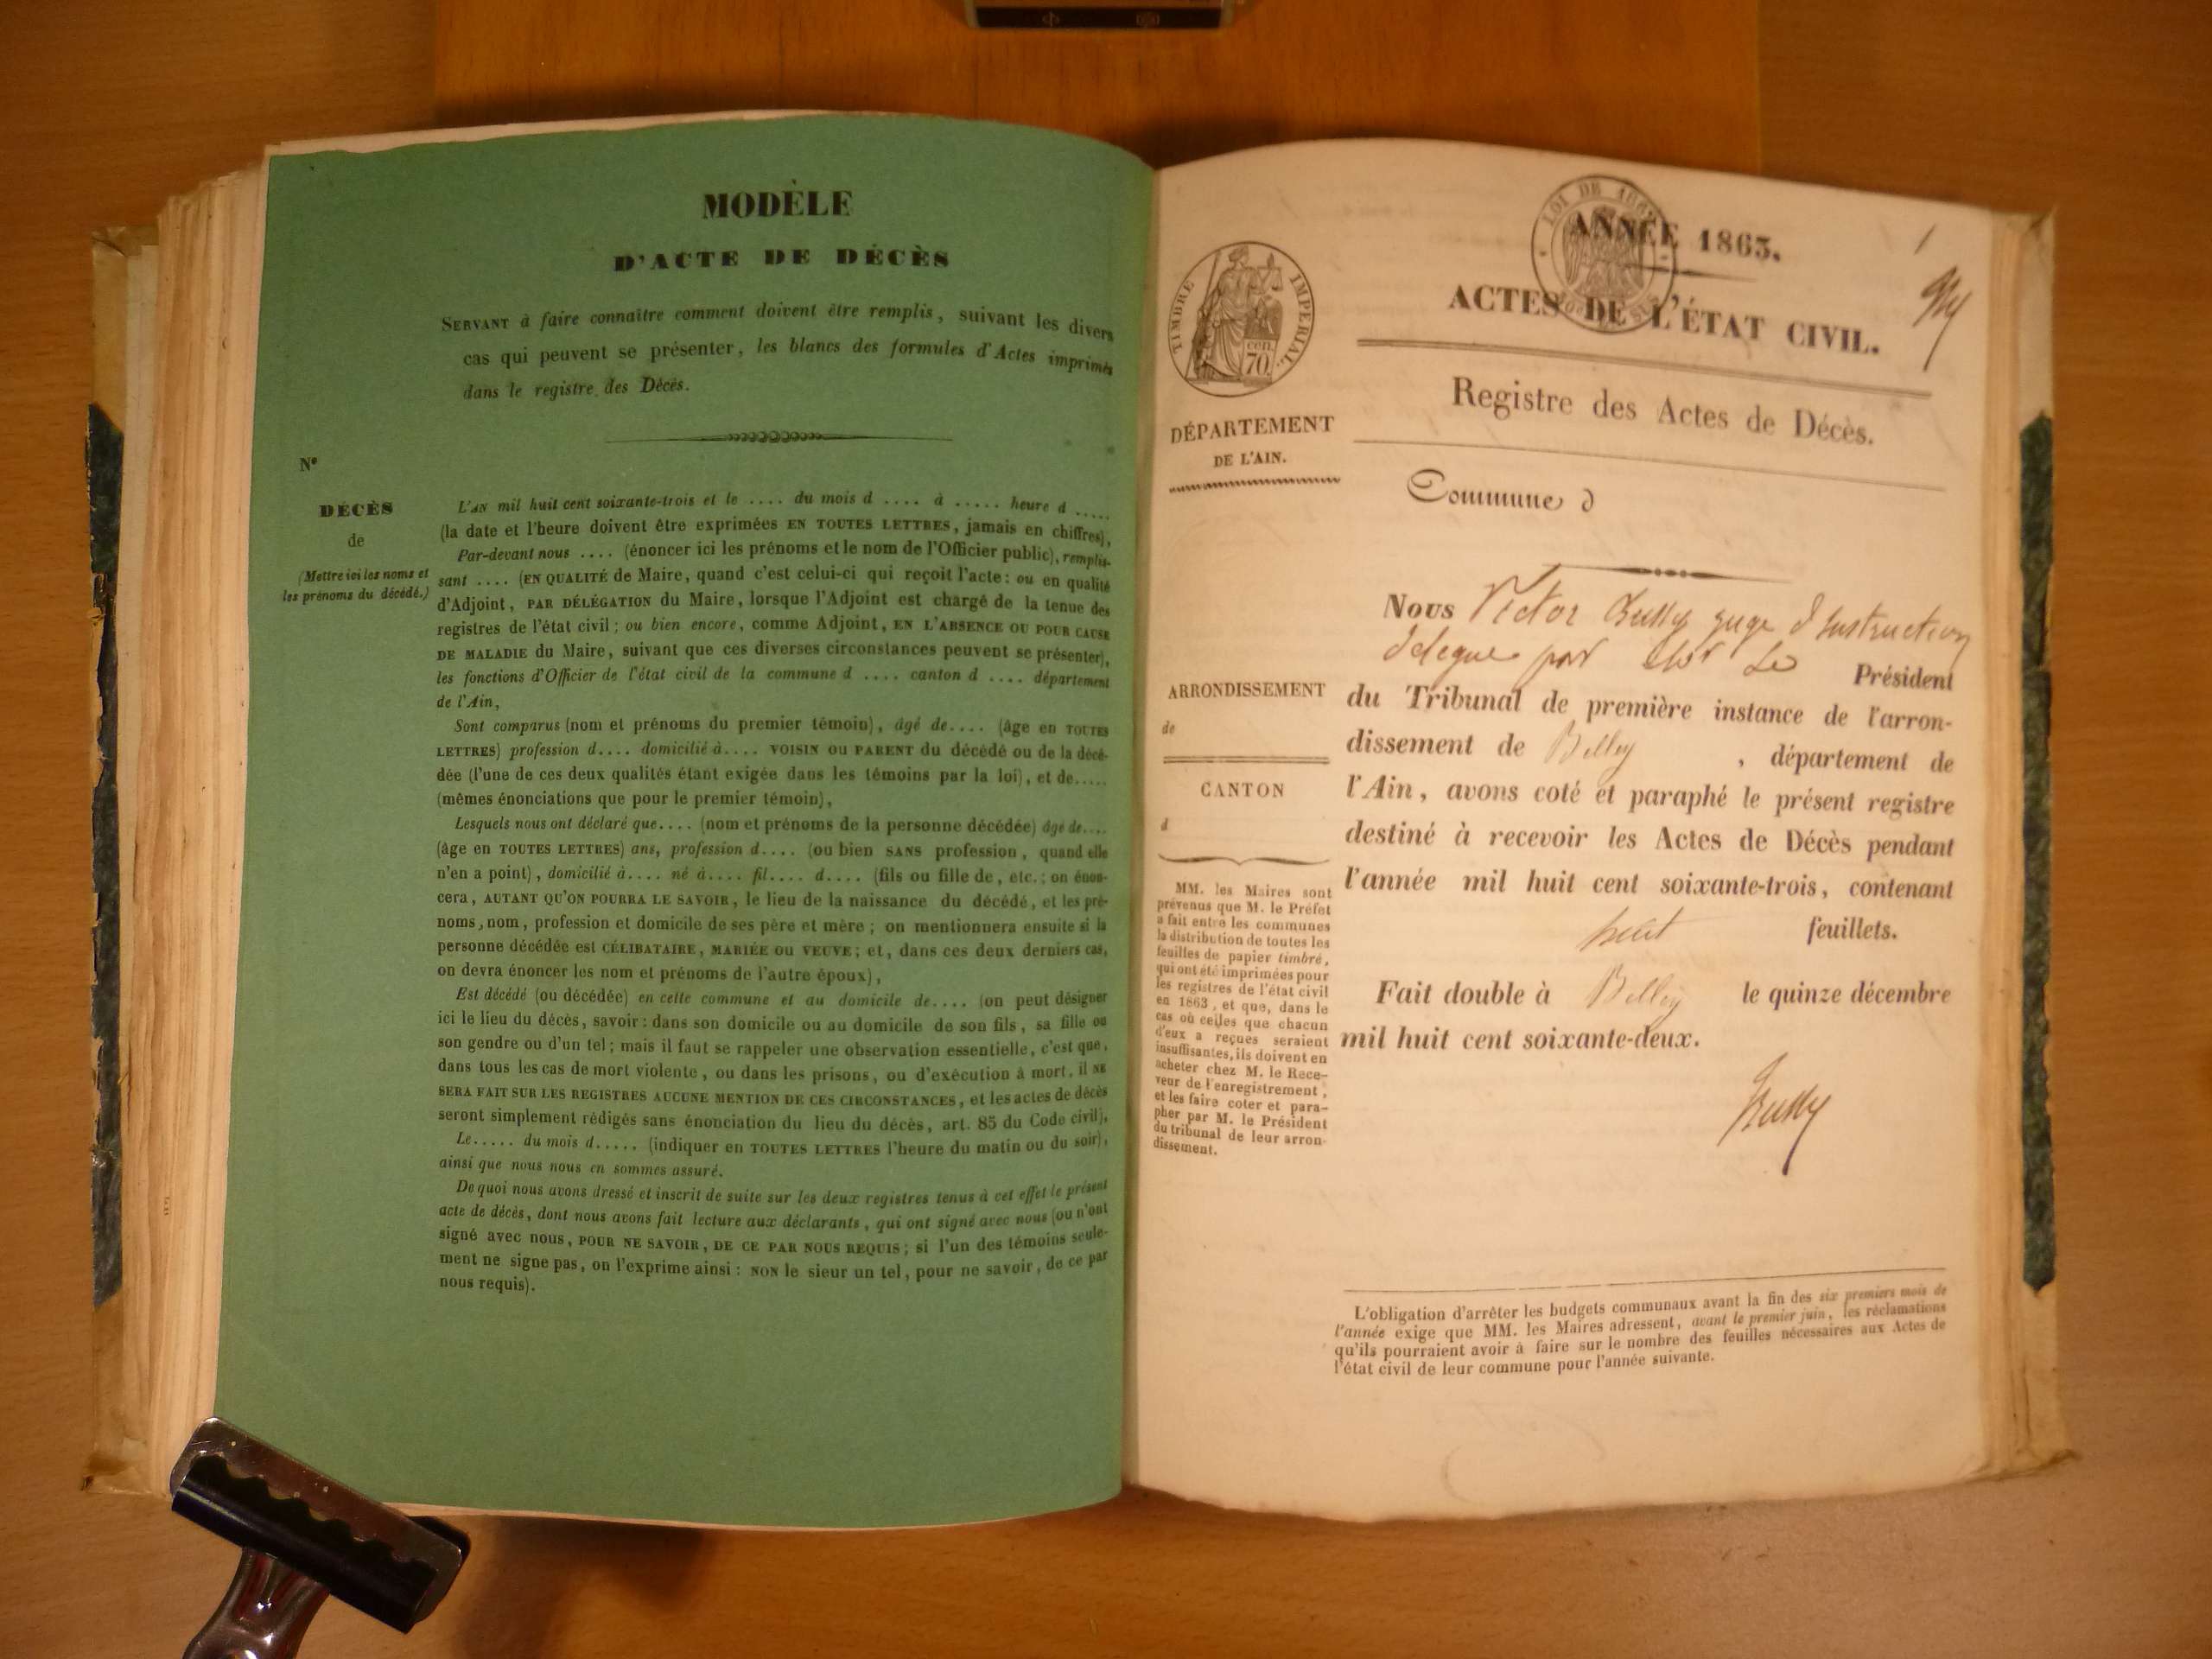 MODÈLE
D'ACTE DE DÉCÈS
SERVANT à faire connaître comment doivent être remplis, suivant les divers
cas qui peuvent se présenter, les blancs des formules d'Actes imprimés
dans le registre des Décès.
N°
DÉCÈS
de
(Mettre ici les noms et
les prénoms du décédé.)
L'AN mil huit cent soixante-trois et le .... du mois d .... à ..... heure d .....
(la date et l'heure doivent être exprimées EN TOUTES LETTRES, jamais en chiffres),
Par-devant nous .... (énoncer ici les prénoms et le nom de l'Officier public), remplis-
sant .... (EN QUALITÉ de Maire, quand c'est celui-ci qui reçoit l'acte: ou en qualité
d'Adjoint, PAR DÉLÉGATION du Maire, lorsque l'Adjoint est chargé de la tenue des
registres de l'état civil; ou bien encore, comme Adjoint, EN L'ABSENCE OU POUR CAUSE
DE MALADIE du Maire, suivant que ces diverses circonstances peuvent se présenter),
les fonctions d'Officier de l'état civil de la commune d .... canton d .... département
de l'Ain,
Sont comparus (nom et prénoms du premier témoin), âgé de.... (âge en TOUTES
LETTRES) profession d.... domicilié à.... VOISIN OU PARENT du décédé ou de la décé-
dée (l'une de ces deux qualités étant exigée dans les témoins par la loi), et de.....
(mêmes énonciations que pour le premier témoin),
Lesquels nous ont déclaré que.... (nom et prénoms de la personne décédée) âgé de....
(âge en TOUTES LETTRES) ans, profession d.... (ou bien SANS profession, quand elle
n'en a point), domicilié à.... né à.... fil.... d.... (fils ou fille de, etc.; on énon-
cera, AUTANT QU'ON POURRA LE SAVOIR, le lieu de la naissance du décédé, et les pré-
noms, nom, profession et domicile de ses père et mère; on mentionnera ensuite si la
personne décédée est CÉLIBATAIRE, MARIÉE OU VEUVE; et, dans ces deux derniers cas,
on devra énoncer les nom et prénoms de l'autre époux),
Est décédé (ou décédée) en cette commune et au domicile de.... (on peut désigner
ici le lieu du décès, savoir: dans son domicile ou au domicile de son fils, sa fille ou
son gendre ou d'un tel; mais il faut se rappeler une observation essentielle, c'est que,
dans tous les cas de mort violente, ou dans les prisons, ou d'exécution à mort, il NE
SERA FAIT SUR LES REGISTRES AUCUNE MENTION DE CES CIRCONSTANCES, et les actes de décès
seront simplement rédigés sans énonciation du lieu du décès, art. 85 du Code civil),
Le..... du mois d..... (indiquer en TOUTES LETTRES l'heure du matin ou du soir),
ainsi que nous nous en sommes assuré.
De quoi nous avons dressé et inscrit de suite sur les deux registres tenus à cet effet le présent
acte de décès, dont nous avons fait lecture aux déclarants, qui ont signé avec nous (ou n'ont
signé avec nous, POUR NE SAVOIR, DE CE PAR NOUS REQUIS; si l'un des témoins seule-
ment ne signe pas, on l'exprime ainsi: NON le sieur un tel, pour ne savoir, de ce par
nous requis).
LOI DE 1862
ANNÉE 1863.
1
ACTES DE L'ÉTAT CIVIL.
TIMBRE IMPERIAL.
cen.
70.
Registre des Actes de Décès.
DÉPARTEMENT
DE L'AIN.
Commune d
Nous Victor juge d'Instruction
delegue par Mr Le Président
du Tribunal de première instance de l'arron-
dissement de Belley, département de
l'Ain, avons coté et paraphé le présent registre
destiné à recevoir les Actes de Décès pendant
l'année mil huit cent soixante-trois, contenant
huit feuillets.
Fait double à Belley le quinze décembre
mil huit cent soixante-deux.
ARRONDISSEMENT
de
CANTON
d
MM. les Maires sont
prévenus que M. le Préfet
a fait entre les communes
la distribution de toutes les
feuilles de papier timbré,
qui ont été imprimées pour
les registres de l'état civil
en 1863, et que, dans le
cas où celles que chacun
d'eux a reçues seraient
insuffisantes, ils doivent en
acheter chez M. le Rece-
veur de l'enregistrement,
et les faire coter et para-
pher par M. le Président
du tribunal de leur arron-
dissement.
L'obligation d'arrêter les budgets communaux avant la fin des six premiers mois de
l'année exige que MM. les Maires adressent, avant le premier juin, les réclamations
qu'ils pourraient avoir à faire sur le nombre des feuilles nécessaires aux Actes de
l'état civil de leur commune pour l'année suivante.